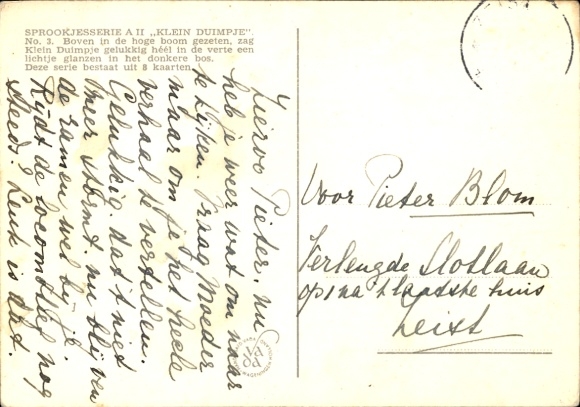 SPROOKJESSERIE A II „KLEIN DUIMPJE".
No. 3. Boven in de hoge boom gezeten, zag
Klein Duimpje gelukkig héél in de verte een
lichtje glanzen in het donkere bos.
Deze serie bestaat uit 8 kaarten.
Lieve Pieter. nu
heb je weer wat om naar
te kijken. Vraag Moeder
maar om je het heele
verhaal te vertellen.
Gelukkig dat 't niet
meer stormt. nu blijven
de ramen wel bij je.
Rijdt de locomotief nog
steeds? Leuk is dat.
Voor Pieter Blom
Verlengde Slotlaan
op 1 na 't laatste huis
Zeist